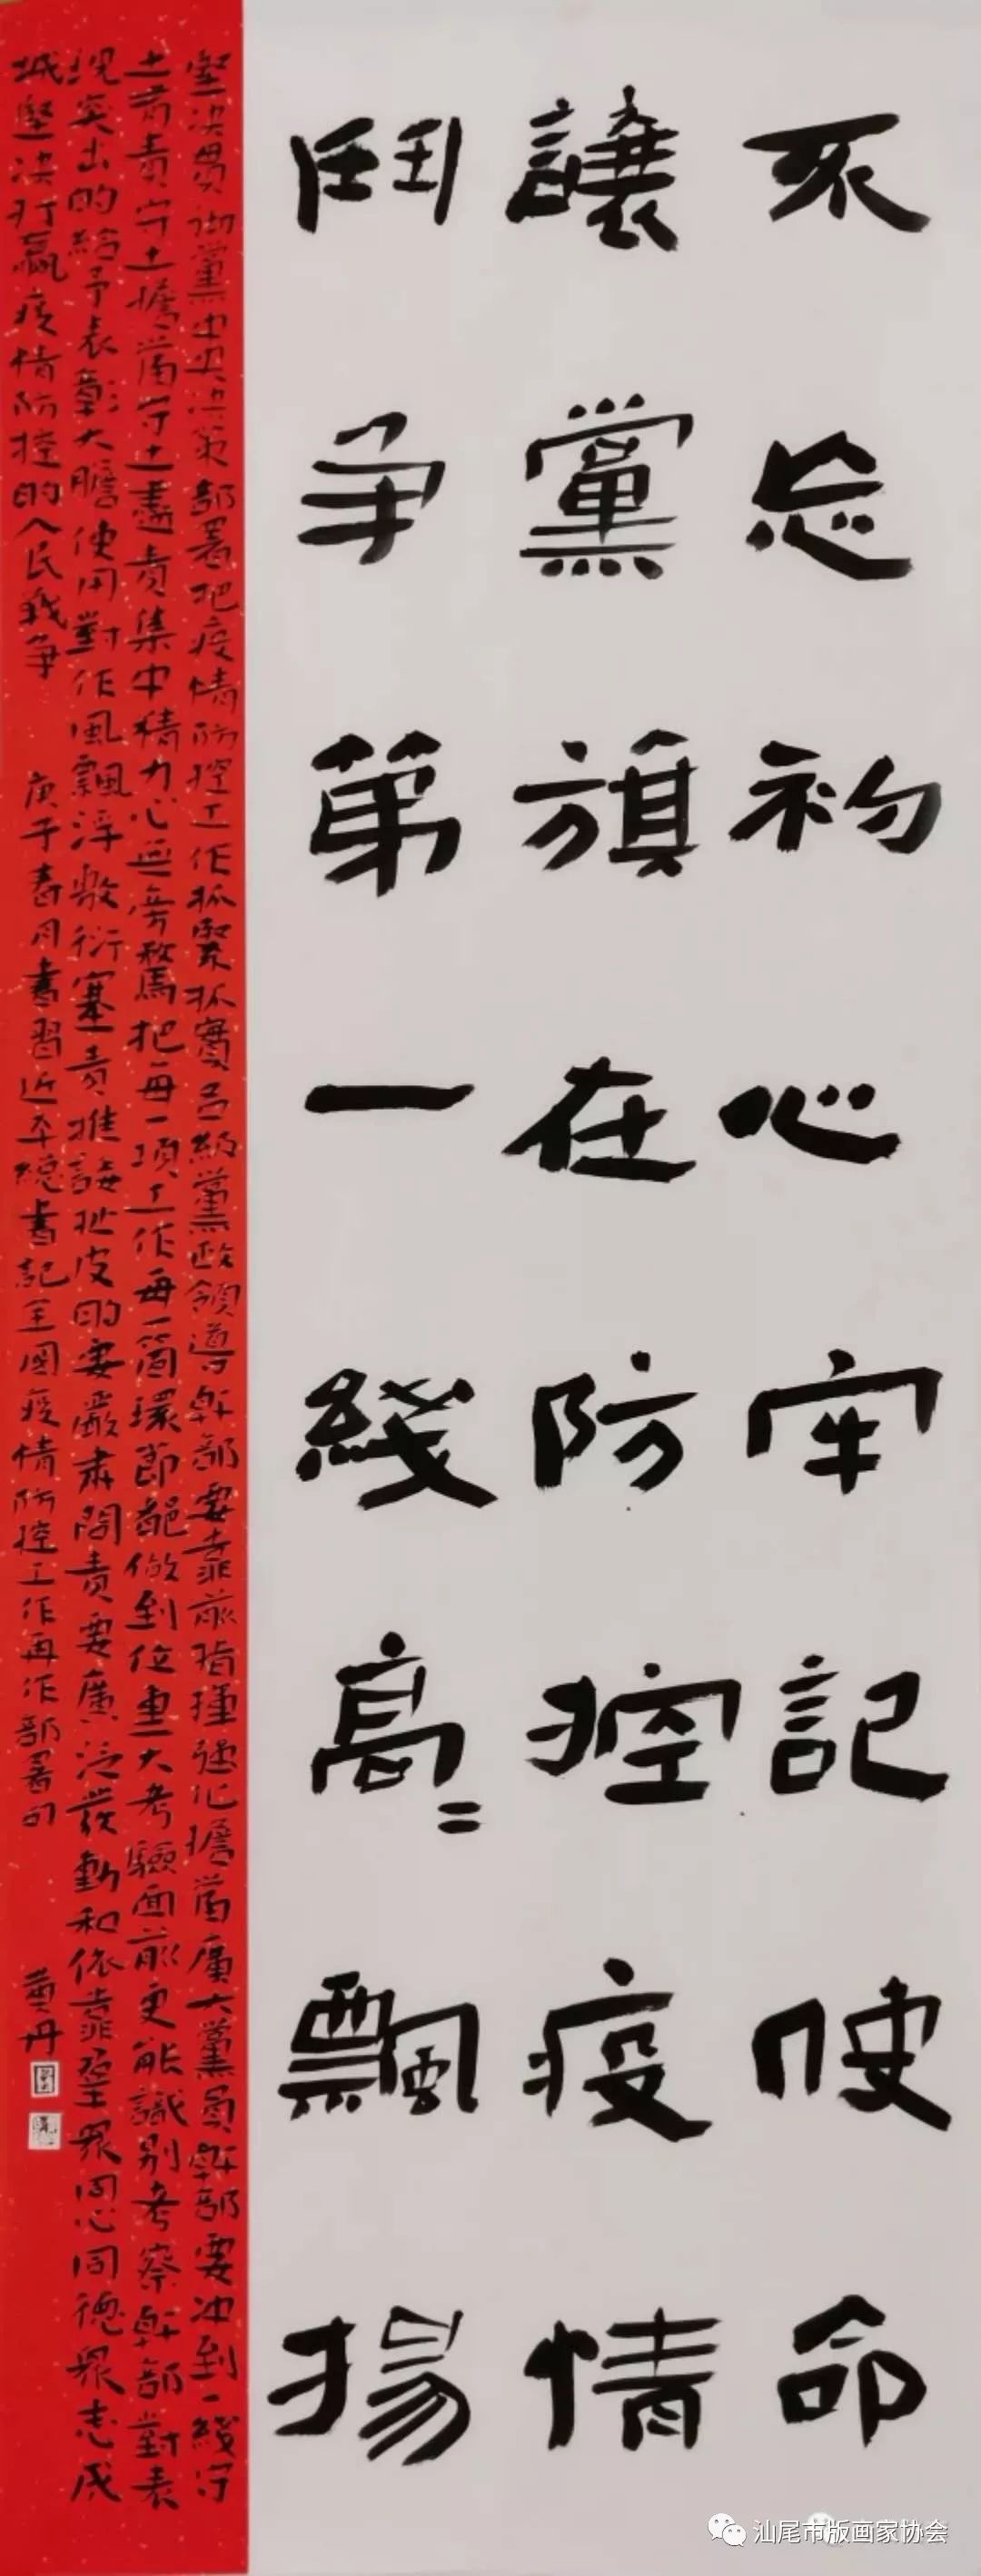 不忘初心牢記使命
讓黨旗在防控疫情
鬥争第一綫高〻飄揚
堅决貫彻黨中央决策部署把疫情防控工作抓緊抓實各級黨政領導幹部要靠前指揮強化擔當廣大黨員幹部要冲到一綫守
土有責守土擔當守土盡責集中精力心無旁騖把每一項工作每一箇環節都做到位重大考驗面前更能識别考察幹部對表
現突出的給予表彰大膽使用對作風飄浮敷衍塞責推諉扯皮的要嚴肃問責要廣泛發動和依靠羣眾同心同德眾志成
城堅决打贏疫情防控的人民戰争 庚子春月書習近平總書記全國疫情防控工作再作部署句 黄丹
汕尾市版画家协会